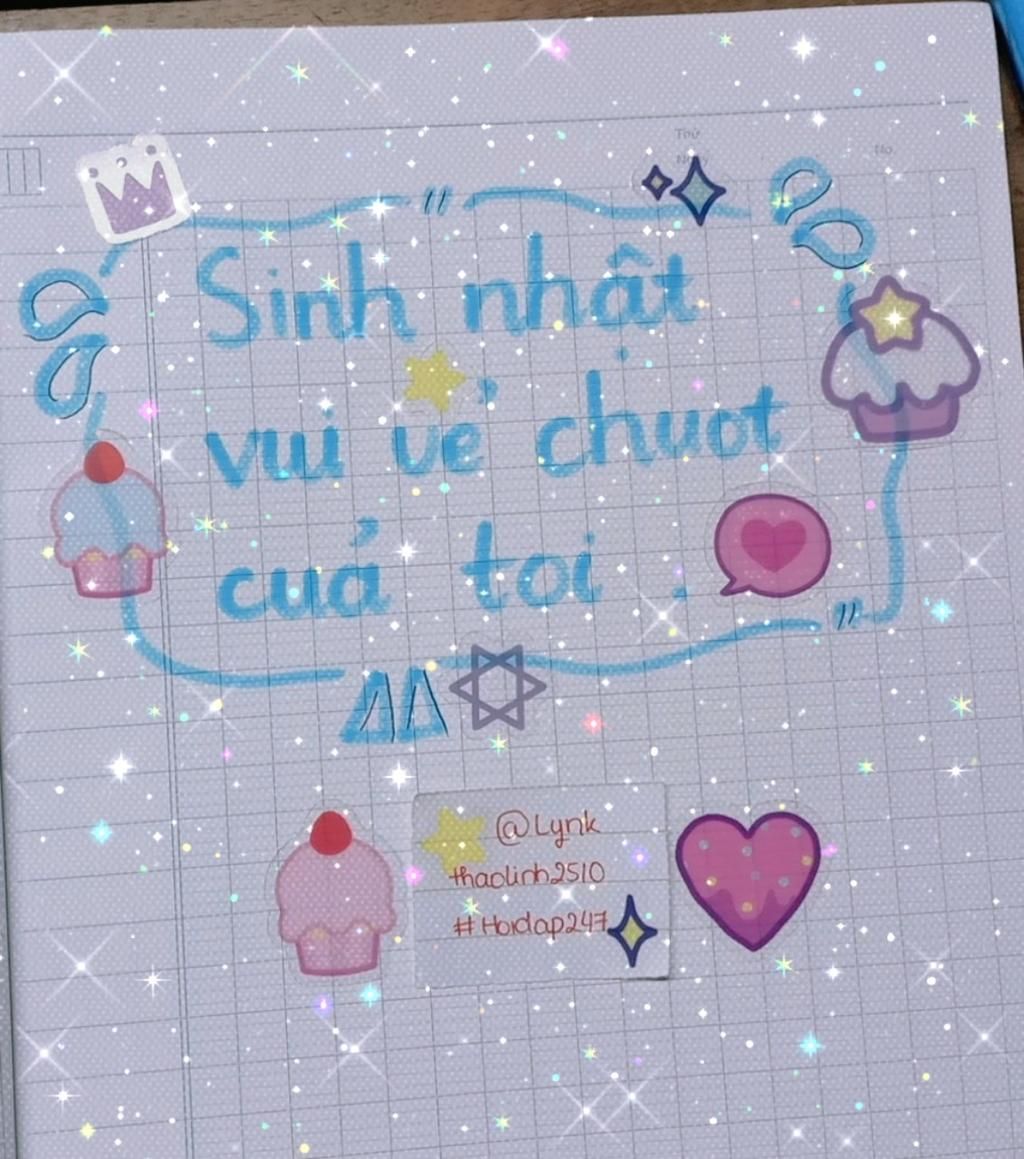 Thứ
Ngày
No.
Sinh nhật
vui vẻ chuot
của toi.
@Lynk
thaolinh2510
#Hoidap247